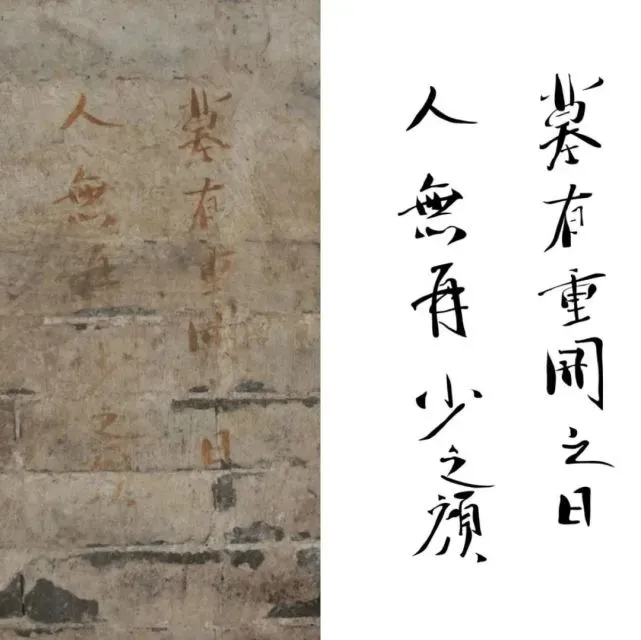 墓有重開日
人無再少之顏
墓有重開之日
人無再少之顏